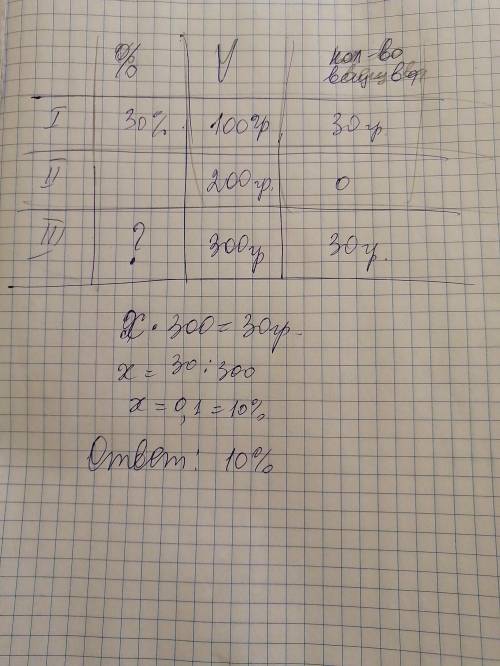 % V кол-во
вещ-в
I 30% 100гр. 30гр
II 200гр. 0
III ? 300гр 30гр.
x · 300 = 30гр.
x = 30 : 300
x = 0,1 = 10%
Ответ: 10%